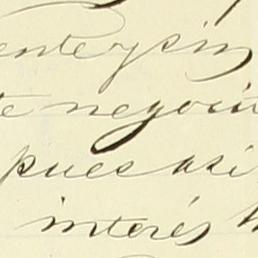 ente y sin
te negocio
pues asi
interés